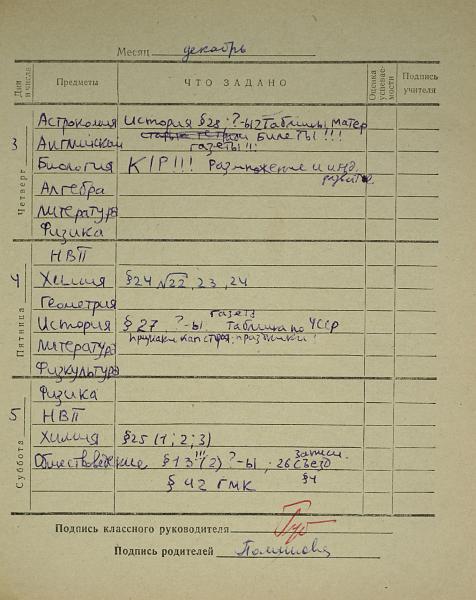 Месяц декабрь
Дни и числа Предметы ЧТО ЗАДАНО Оценка успеваемости Подпись учителя
3 Четверг
Астрономия История §28; ?-ы Таблицы матер
Английский старые тетради Билеты!!!
газеты!!!
Биология К/Р!!! Размножение и инд.
развитие
Алгебра
Литература
Физика
4 Пятница
НВП
Химия §24 √22, 23, 24
Геометрия
газета
История §27, ?-ы, таблица по УССР
Литература признаки кап строя; праздники!
Физкультура
5 Суббота
Физика
НВП
Химия §25 (1; 2; 3)
записи.
Обществоведение §13 (2)!!! ?-ы; 26 съезд
§ 42 ГМК §4
Подпись классного руководителя
Подпись родителей